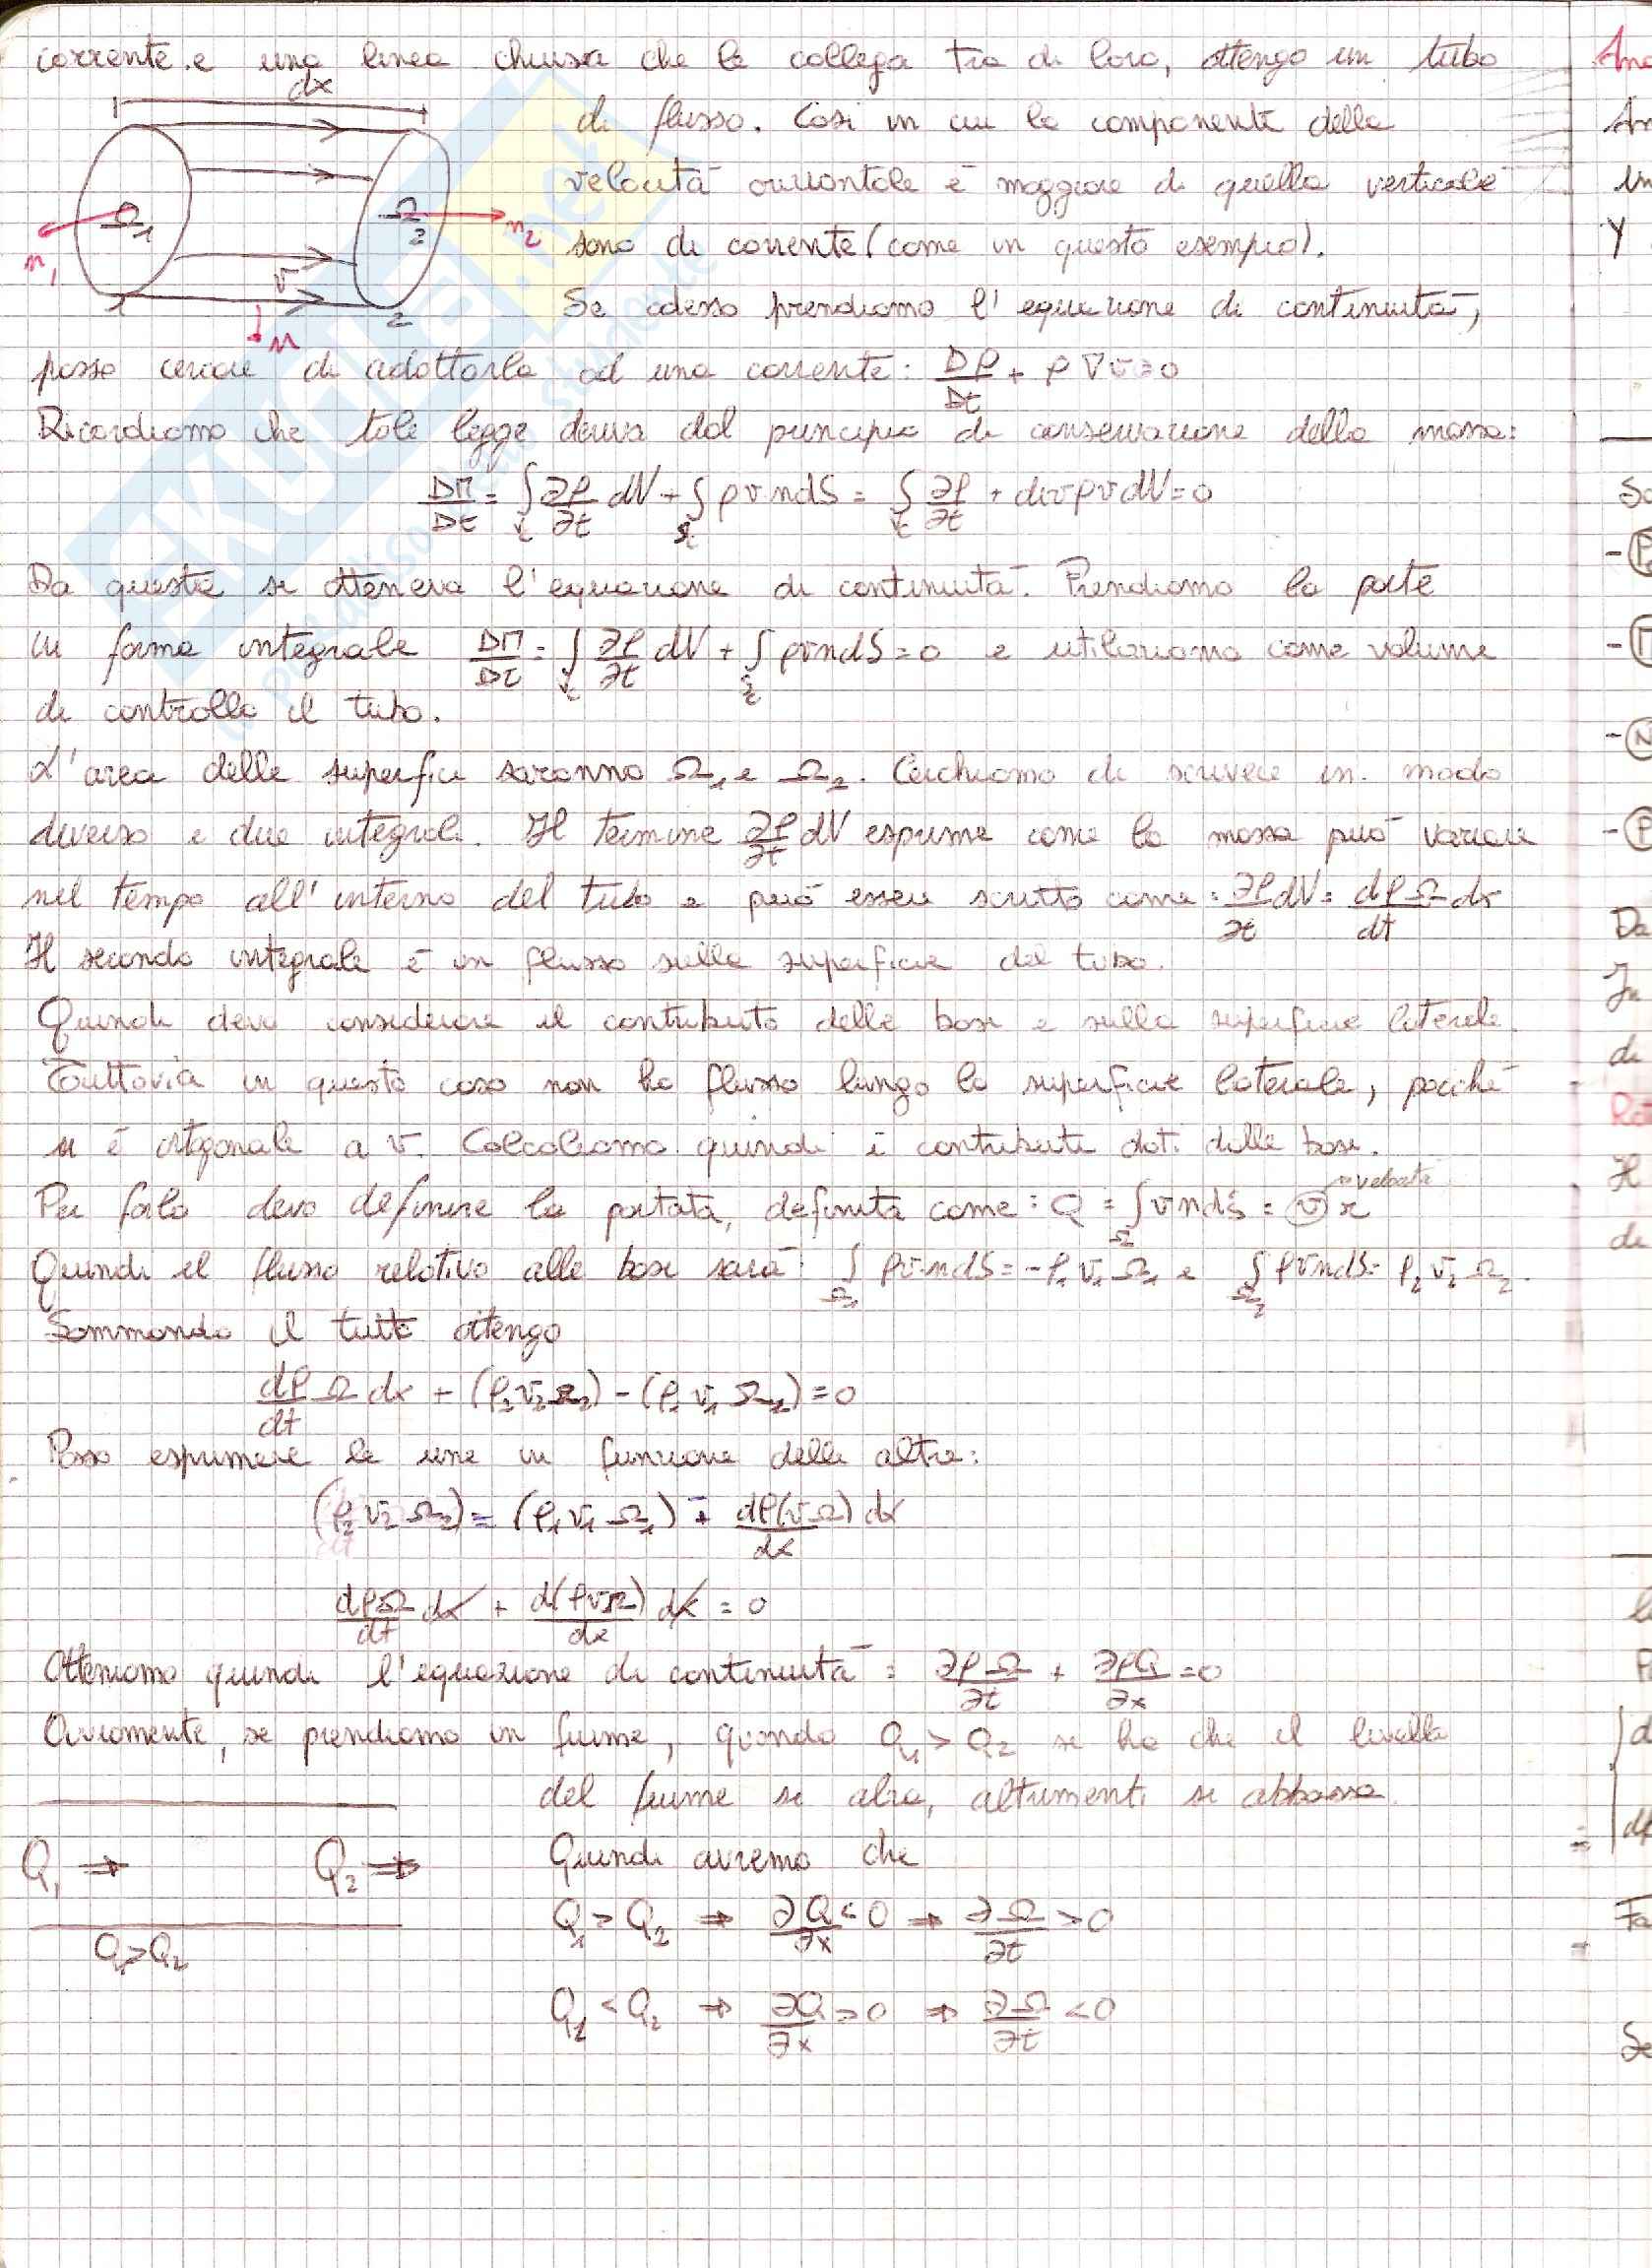 corrente e una linea chiusa che le collega tra di loro, ottengo un tubo
dx
di flusso. Casi in cui la componente della
velocità orizzontale è maggiore di quella verticale
sono di corrente (come in questo esempio).
Ω1 Ω2 n1 n2 v n 1 2
Se adesso prendiamo l'equazione di continuità,
posso cercare di adattarla ad una corrente: Dρ/Dt + ρ∇v=0
Ricordiamo che tale legge deriva dal principio di conservazione della massa:
DM/Dt = ∫ ∂ρ/∂t dV + ∫ ρv·ndS = ∫ ∂ρ/∂t + divρv dV = 0
Da questa si otteneva l'equazione di continuità. Prendiamo la parte
in forma integrale DM/Dt = ∫ ∂ρ/∂t dV + ∫ ρvndS = 0 e utilizziamo come volume
di controllo il tubo.
L'area delle superfici saranno Ω1 e Ω2. Cerchiamo di scrivere in modo
diverso i due integrali. Il termine ∂ρ/∂t dV esprime come la massa può variare
nel tempo all'interno del tubo e può essere scritto come: ∂ρ/∂t dV = dρΩ/dt dx
Il secondo integrale è un flusso sulla superficie del tubo.
Quindi devo considerare il contributo delle basi e sulla superficie laterale.
Tuttavia in questo caso non ho flusso lungo la superficie laterale, poiché
n è ortogonale a v. Calcoliamo quindi i contributi dati dalle basi.
Per farlo devo definire la portata, definita come: Q = ∫Ω vndS = v
velocità
Quindi il flusso relativo alle basi sarà ∫Ω1 ρv·ndS = -ρ1 v1 Ω1 e ∫Ω2 ρvndS = ρ2 v2 Ω2.
Sommando il tutto ottengo
dρΩ/dt dx + (ρ2v2Ω2) - (ρ1v1Ω1) = 0
Posso esprimere le une in funzione delle altre:
(ρ2v2Ω2) = (ρ1v1Ω1) + dρ(vΩ)/dx dx
dρΩ/dt dx + d(ρvΩ)/dx dx = 0
Otteniamo quindi l'equazione di continuità: ∂ρΩ/∂t + ∂ρQ/∂x = 0
Ovviamente, se prendiamo un fiume, quando Q1 > Q2 si ha che il livello
del fiume si alza, altrimenti si abbassa.
Q1 ⇒ Q2 ⇒
Quindi avremo che
Q1 > Q2 ⇒ ∂Q/∂x < 0 ⇒ ∂Ω/∂t > 0
Q1 > Q2
Q1 < Q2 ⇒ ∂Q/∂x > 0 ⇒ ∂Ω/∂t < 0